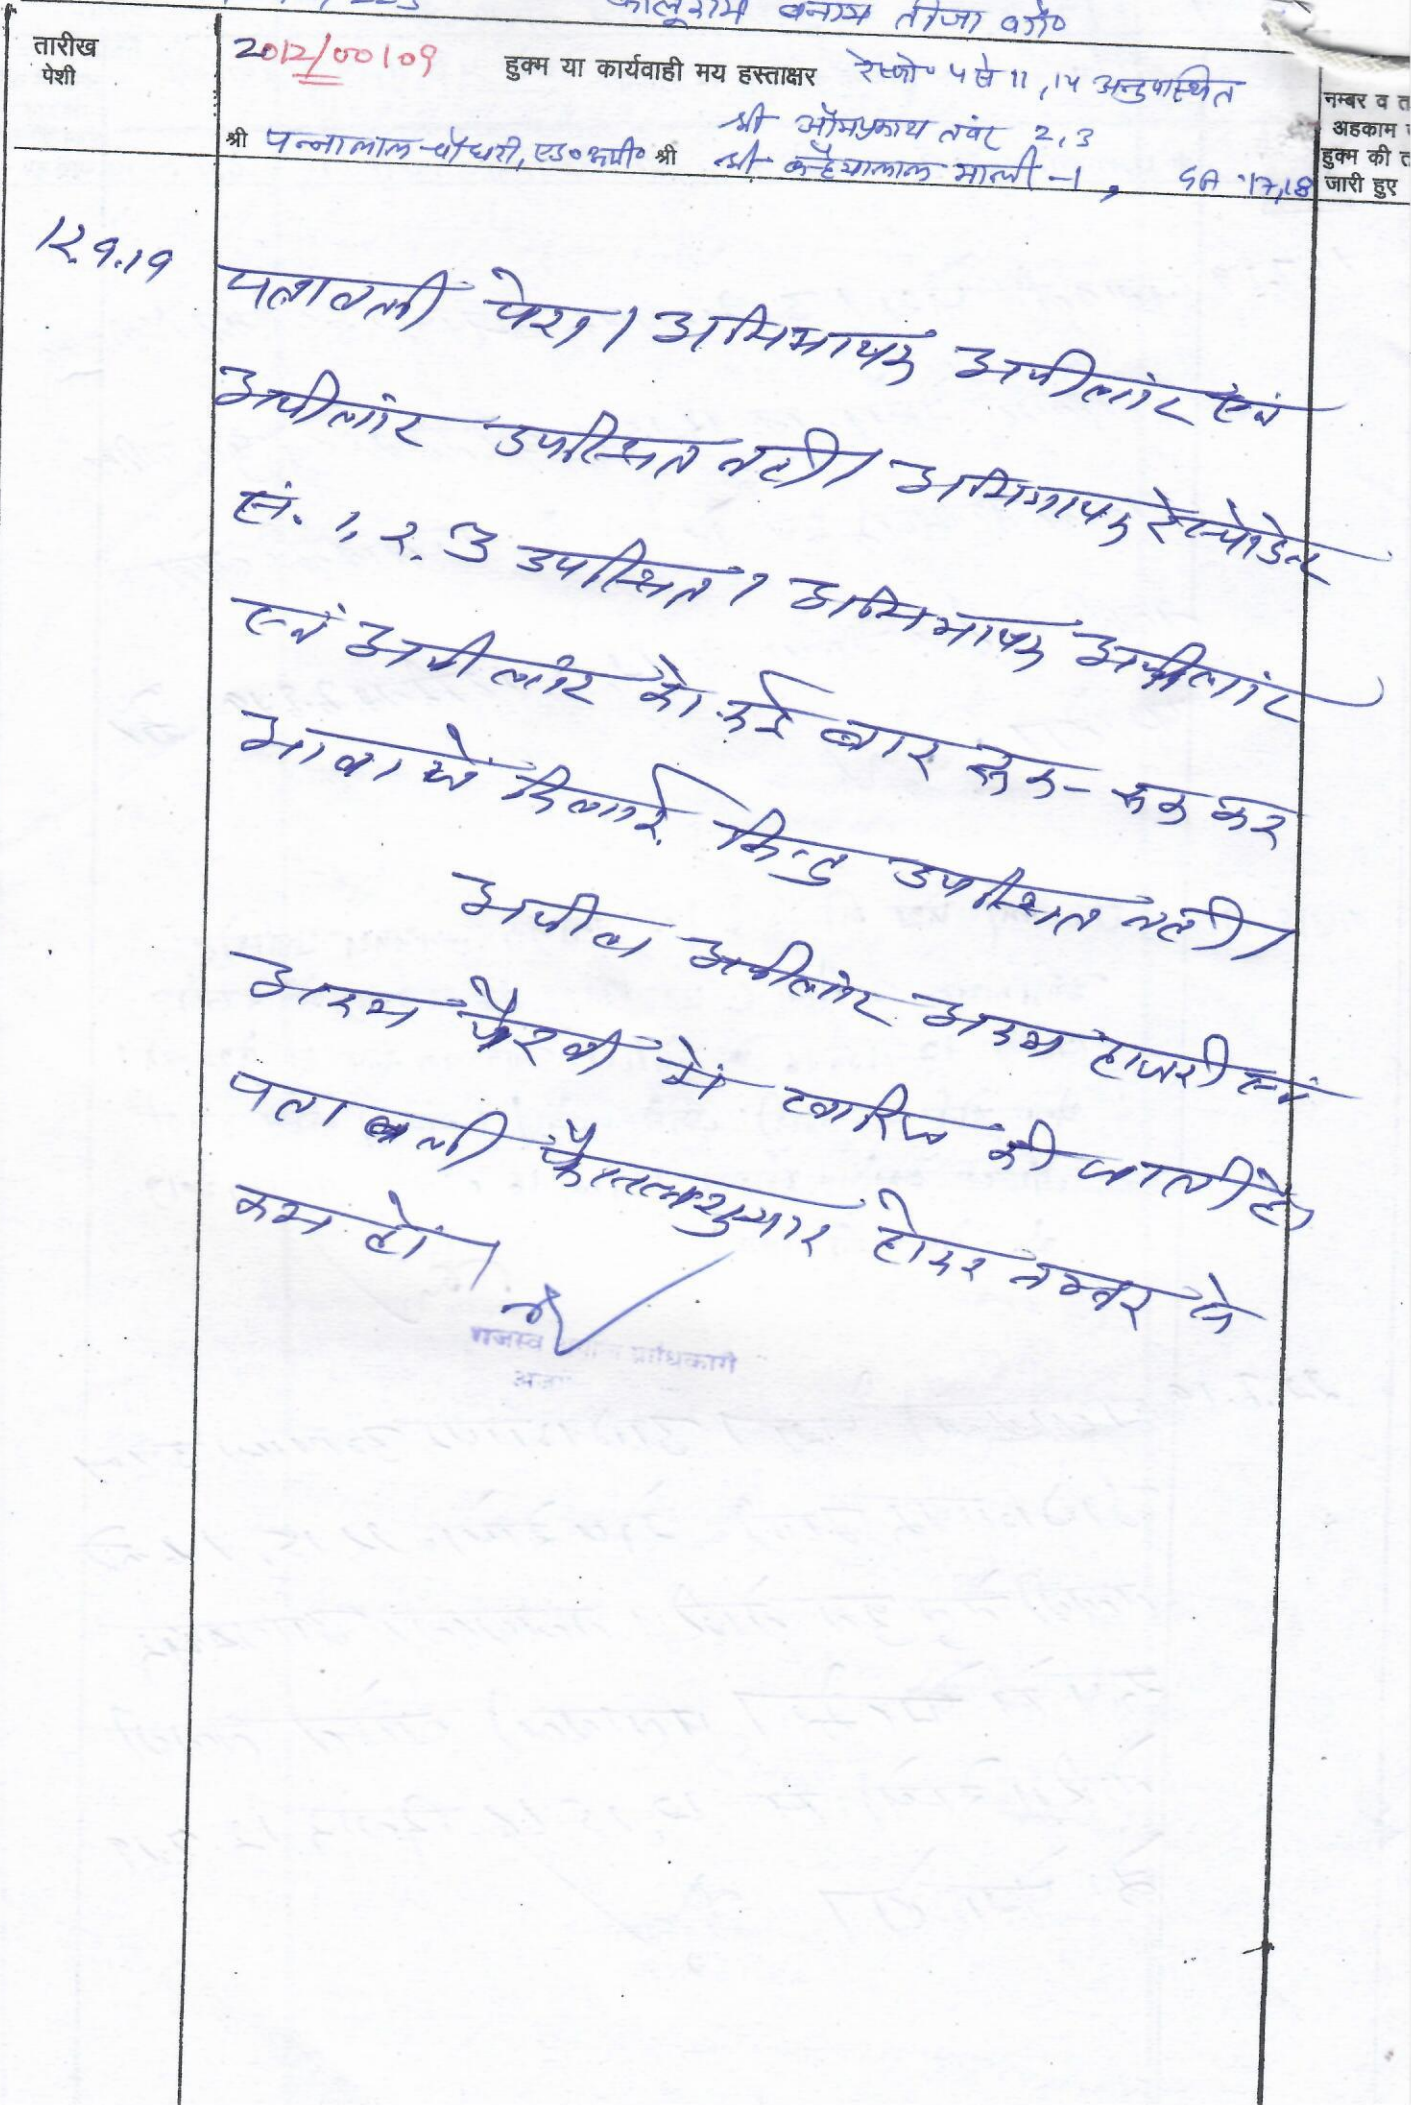 कालूराम बनाम तीजा वगै०
तारीख
पेशी
2012/00109
हुक्म या कार्यवाही मय हस्ताक्षर
रेस्पो० 4 से 11, 14 अनुपस्थित
श्री ओमप्रकाश तंवर 2,3
श्री पन्नालाल चौधरी, एड० अपी० श्री
श्री कन्हैयालाल माली -1, GA 17,18
नम्बर व त
अहकाम
हुक्म की त
जारी हुए
12.9.19
पत्रावली पेश। अभिभाषक अपीलांट एवं
अपीलांट उपस्थित नहीं। अभिभाषक रेस्पोडेन्ट
सं. 1, 2, 3 उपस्थित। अभिभाषक अपीलांट
एवं अपीलांट को कई बार रूक-रूक कर
आवाजें दिलाई किन्तु उपस्थित नहीं।
अपील अपीलांट अदम हाजरी एवं
अदम पैरवी में खारिज की जाती है।
पत्रावली फैसलाशुमार होकर नम्बर से
कम हो।
राजस्व प्राधिकारी